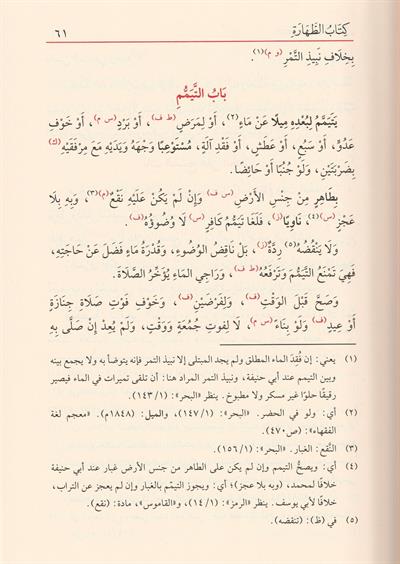 كِتَابُ الطَّهَارَةِ
٦١
بِخِلَافِ نَبِيذِ التَّمْرِ (و م)(١).
بَابُ التَّيَمُّمِ
يَتَيَمَّمُ لِبُعْدِهِ مِيلًا عَنْ مَاءٍ(٢)، أَوْ لِمَرَضٍ (ط ف)، أَوْ بَرْدٍ (س م)، أَوْ خَوْفِ
عَدُوٍّ، أَوْ سَبُعٍ، أَوْ عَطَشٍ، أَوْ فَقْدِ آلَةٍ، مُسْتَوْعِبًا وَجْهَهُ وَيَدَيْهِ مَعَ مِرْفَقَيْهِ (ك)
بِضَرْبَتَيْنِ، وَلَوْ جُنُبًا أَوْ حَائِضًا.
بِطَاهِرٍ مِنْ جِنْسِ الْأَرْضِ (س ف) وَإِنْ لَمْ يَكُنْ عَلَيْهِ نَقْعٌ (م)(٣)، وَبِهِ بِلَا
عَجْزٍ (س)(٤)، نَاوِيًا (ز)، فَلَغَا تَيَمُّمُ كَافِرٍ (س) لَا وُضُوؤُهُ (ف).
وَلَا يَنْقُضُهُ(٥) رِدَّةٌ (ز)، بَلْ نَاقِضُ الْوُضُوءِ، وَقُدْرَةُ مَاءٍ فَضَلَ عَنْ حَاجَتِهِ،
فَهِيَ تَمْنَعُ التَّيَمُّمَ وَتَرْفَعُهُ (ط ف)، وَرَاجِي الْمَاءِ يُؤَخِّرُ الصَّلَاةَ.
وَصَحَّ قَبْلَ الْوَقْتِ (ف)، وَلِفَرْضَيْنِ (ف)، وَخَوْفِ فَوْتِ صَلَاةِ جَنَازَةٍ
أَوْ عِيدٍ (ف) وَلَوْ بِنَاءً (س م)، لَا لِفَوتِ جُمُعَةٍ وَوَقْتٍ، وَلَمْ يُعِدْ إِنْ صَلَّى بِهِ
(١) يعني: إن فُقِدَ الماء المطلق ولم يجد المبتلى إلا نبيذ التمر فإنه يتوضأ به ولا يجمع بينه
وبين التيمم عند أبي حنيفة، ونبيذ التمر المراد هنا: أن تلقى تميرات في الماء فيصير
رقيقًا حلوًا غير مسكر ولا مطبوخ. ينظر «البحر»: (١/ ١٤٣).
(٢) أي: ولو في الحضر. «البحر»: (١/ ١٤٧)، والميل: (١٨٤٨م). «معجم لغة
الفقهاء»: (ص٤٧٠).
(٣) النَّقع: الغبار. «البحر»: (١/ ١٥٦).
(٤) أي: ويصحُّ التيمم وإن لم يكن على الطاهر من جنس الأرض غبار عند أبي حنيفة
خلافًا لمحمد، (وبه بلا عجز): أي: ويجوز التيمّم بالغبار وإن لم يعجز عن التراب،
خلافًا لأبي يوسف. ينظر «الرمز»: (١/ ١٤)، و«القاموس»، مادة: (نقع).
(٥) في (ظ): (تنقضه).